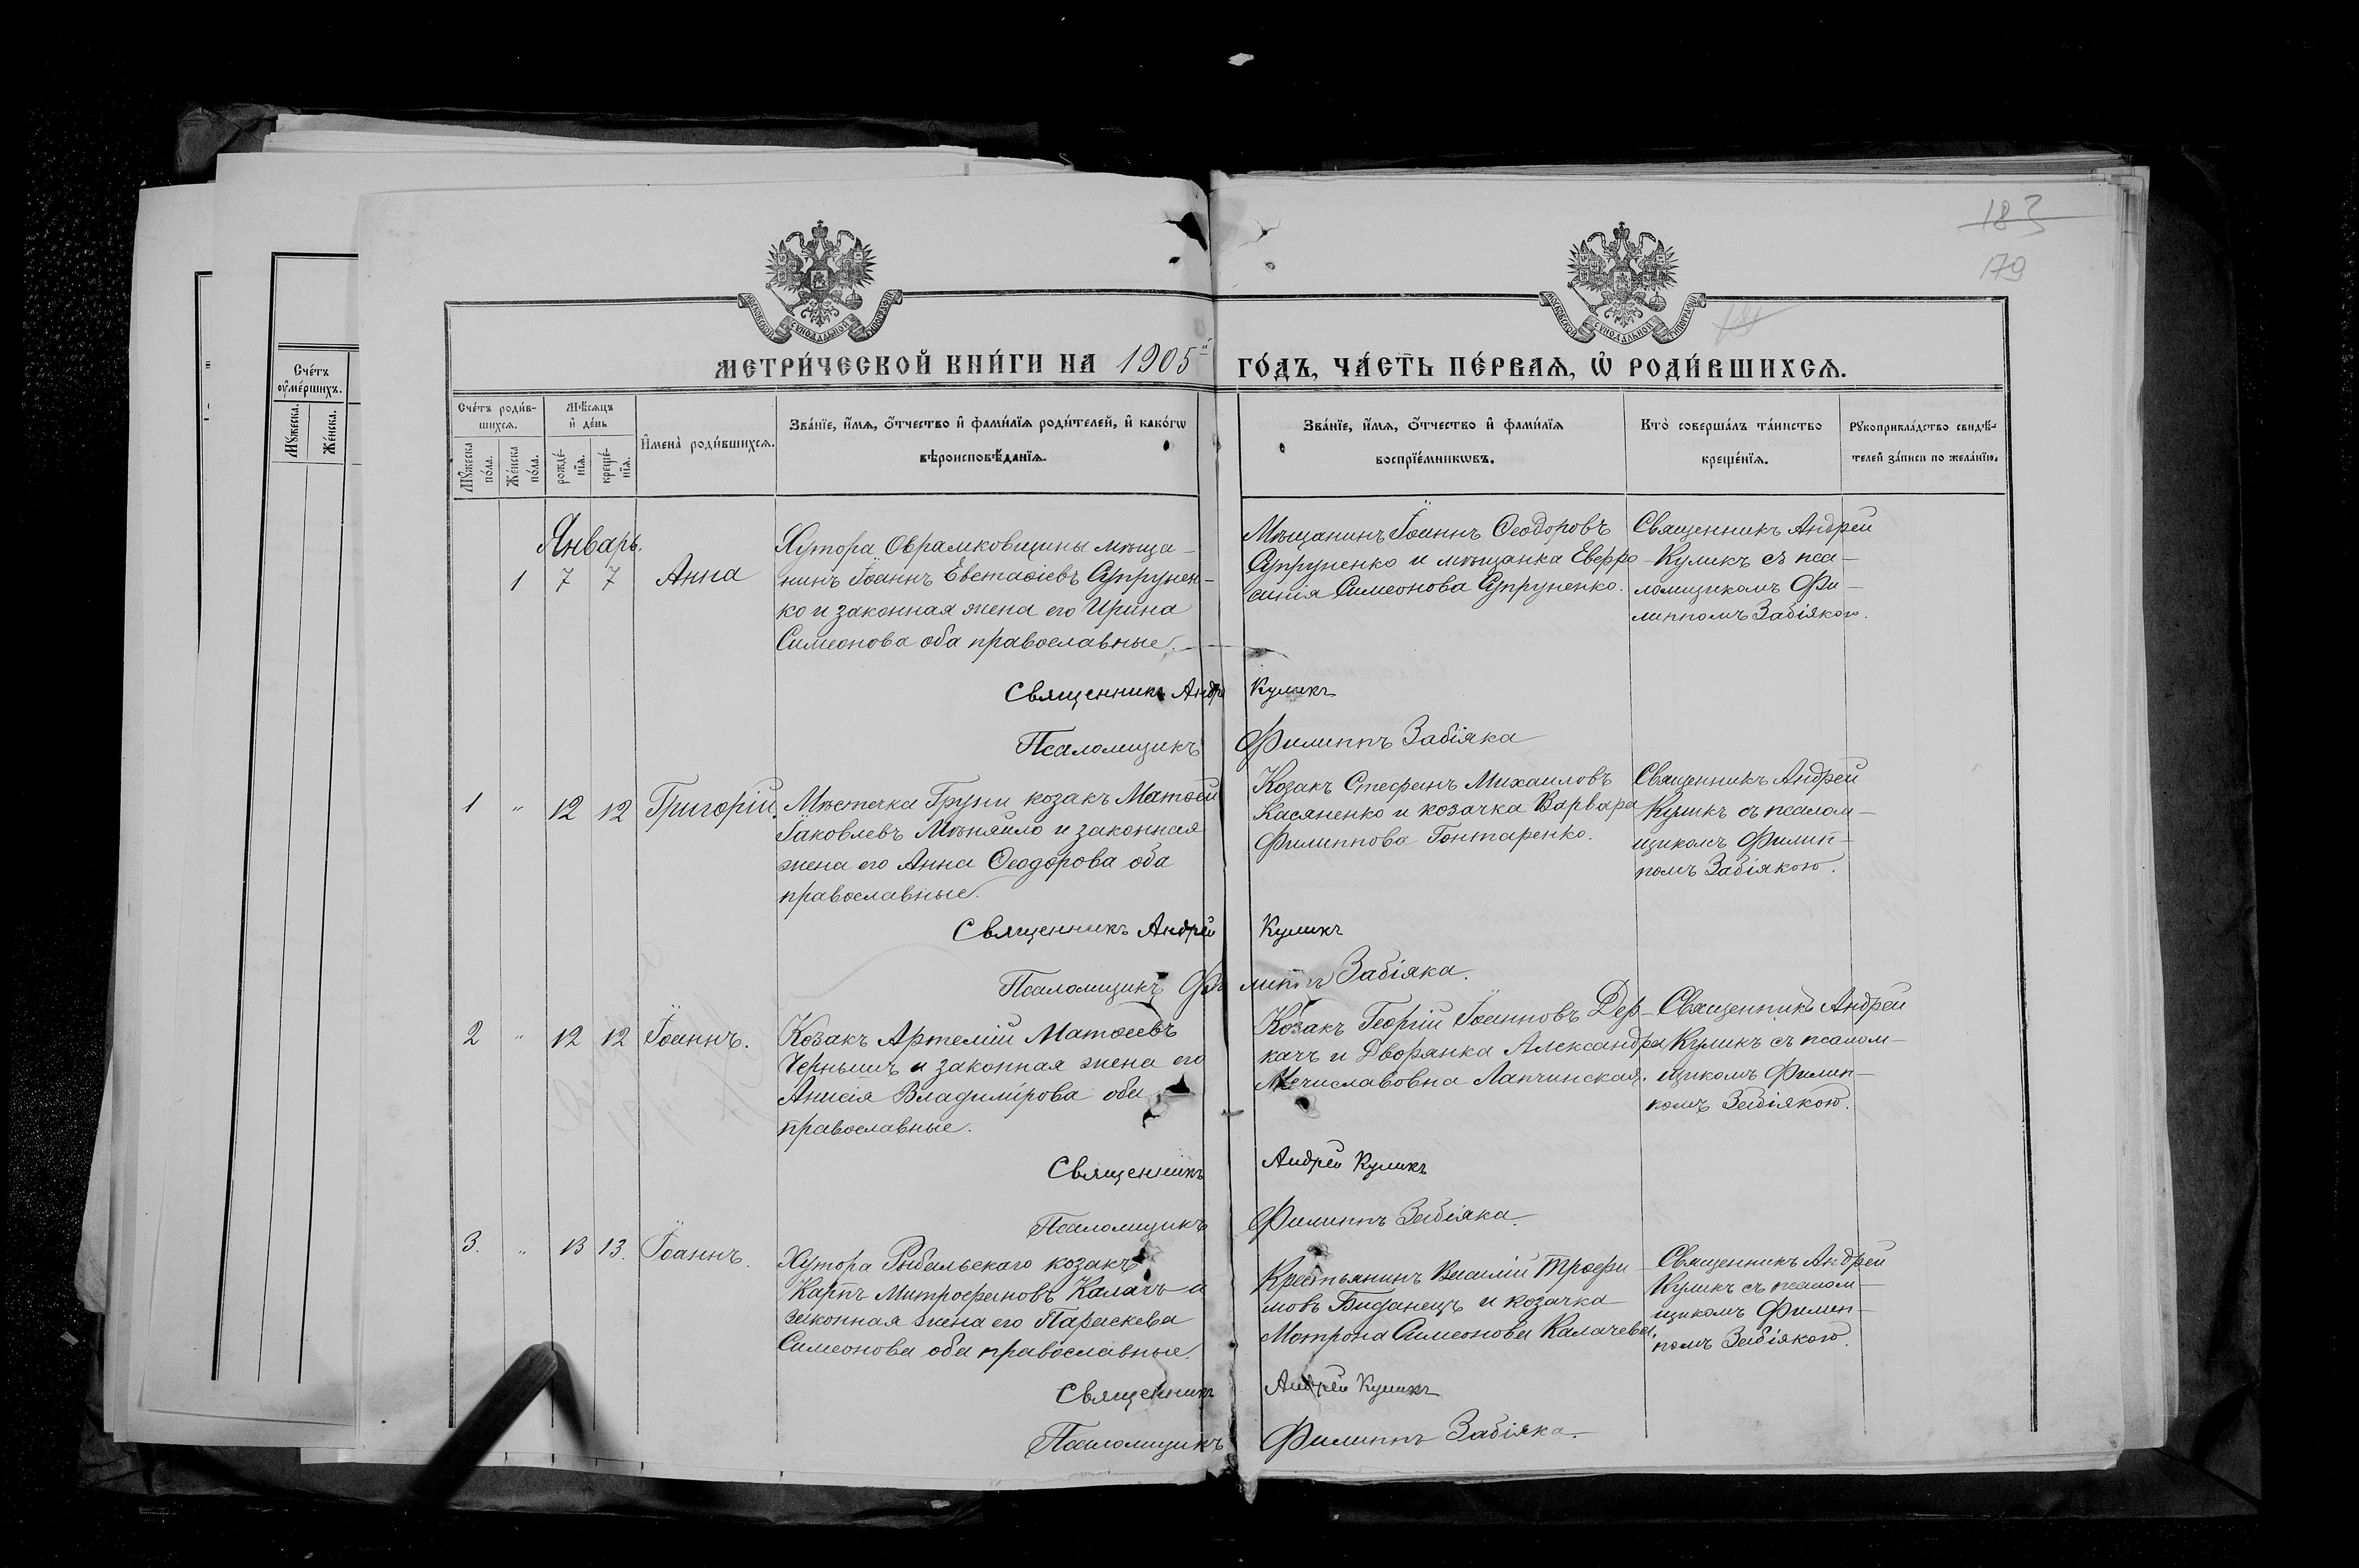 183
179
МОСКОВСКОЙ СѴНОДАЛЬНОЙ ТИПОГРАФІИ
МОСКОВСКОЙ СѴНОДАЛЬНОЙ ТИПОГРАФІИ
МЕТРИ́ЧЕСКОЙ КНИ́ГИ НА 1905й ГО́ДЪ, ЧА́СТЬ ПЕ́РВАѦ, Ѡ҆ РОДИ́ВШИХСѦ.
Сче́тъ оу҆ме́ршихъ.
Мꙋ́жеска.
Же́нска.
Сче́тъ роди́в-
шихсѧ.
Мꙋ́жеска по́ла.
Же́нска по́ла.
Мѣ́сѧцъ
и҆ де́нь
рожде́-
нїѧ.
креще́-
нїѧ.
И҆мена̀ роди́вшихсѧ.
Зва́нїе, и҆́мѧ, ѻ҆́тчество и҆ фами́лїѧ роди́телей, и҆ како́гѡ
вѣроисповѣ́данїѧ.
Зва́нїе, и҆́мѧ, ѻ҆́тчество и҆ фами́лїѧ
воспрїе́мникѡвъ.
Кто̀ соверша́лъ та́инство
креще́нїѧ.
Рꙋкоприкла́дство свидѣ́-
телей за́писи по жела́нїю.
Январь.
1 7 7 Анна
Хутора Оврамковщины мѣща-
нинъ Іоаннъ Евстафіевъ Супрунен-
ко и законная жена его Ирина
Симеонова оба православные.
Мѣщанинъ Іоаннъ Ѳеодоровъ
Супруненко и мѣщанка Евфро-
синія Симеонова Супруненко.
Священникъ Андрей
Куликъ съ пса-
ломщикомъ Фи-
липпомъ Забіякою.
Священникъ Андр Куликъ
Псаломщикъ Филиппъ Забіяка
1 " 12 12 Григорій.
Мѣстечка Груни козакъ Матѳей
Іаковлевъ Мѣняйло и законная
жена его Анна Ѳеодорова оба
православные.
Козакъ Стефанъ Михаиловъ
Касяненко и козачка Варвара
Филиппова Гонтаренко.
Священникъ Андрей
Куликъ съ псалом-
щикомъ Филип-
помъ Забіякою.
Священникъ Андрей Куликъ
Псаломщикъ Филиппъ Забіяка.
2 " 12 12 Іоаннъ.
Козакъ Артемій Матѳеевъ
Чернышъ и законная жена его
Анисія Владимірова оба
православные.
Козакъ Георгій Іоанновъ Дер-
качъ и Дворянка Александра
Мечиславовна Лапчинская.
Священникъ Андрей
Куликъ съ псалом-
щикомъ Филип-
помъ Забіякою.
Священникъ Андрей Куликъ
Псаломщикъ Филиппъ Забіяка.
3. " 13 13. Іоаннъ.
Хутора Рыбальскаго козакъ
Карпъ Митрофановъ Калачъ и
законная жена его Параскева
Симеонова оба православные.
Крестьянинъ Василій Трофи-
мовъ Биданецъ и козачка
Мотрона Симеонова Калачева.
Священникъ Андрей
Куликъ съ псалом-
щикомъ Филип-
помъ Забіякою.
Священникъ Андрей Куликъ
Псаломщикъ Филиппъ Забіяка.